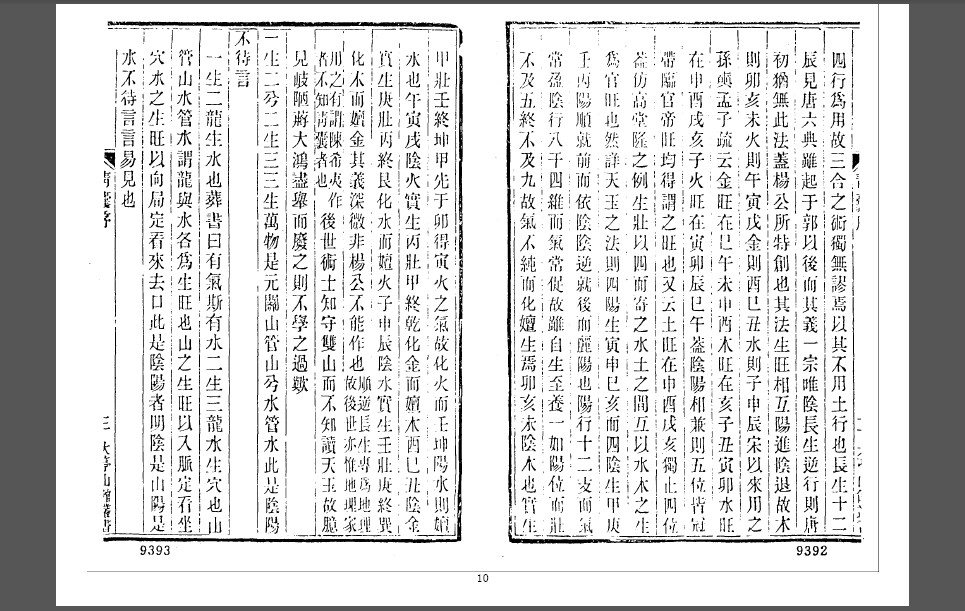 四行爲用故三合之術獨無謬焉以其不用土行也長生十二
辰見唐六典雖起于郭以後而其義一宗唯陰長生逆行則唐
初猶無此法蓋楊公所特創也其法生旺相互陽進陰退故木
則卯亥未火則午寅戌金則酉巳丑水則子申辰宋以來用之
孫奭孟子疏云金旺在巳午未申酉木旺在亥子丑寅卯水旺
在申酉戌亥子火旺在寅卯辰巳午葢陰陽相兼則五位皆冠
帶臨官帝旺均得謂之旺也又云土旺在申酉戌亥獨止四位
葢仿高堂隆之例生壯以四而寄之水土之間互以水木之生
爲官旺也然詳天玉之法則四陽生寅申巳亥而四陰生甲庚
壬丙陽順就前而依陰陰逆就後而麗陽也陽行十二支而氣
常盈陰行八干四維而氣常促故雖自生至養一如陽位而壯
不及五終不及九故氣不純而化嬗生焉卯亥未陰木也官生
甲壯壬終坤甲先于卯得寅火之氣故化火而壬坤陽水則嬗
水也午寅戌陰火實生丙壯甲終乾化金而嬗木酉巳丑陰金
實生庚壯丙終艮化水而嬗火子申辰陰水實生壬壯庚終巽
化木而嬗金其義深微非楊公不能作也順逆長生專爲地理
故後世亦惟地理家
用之有謂陳希夷作
者不知靑囊者也後世術士知守雙山而不知讀天玉故臆
見岐陋蔣大鴻盡舉而廢之則不學之過歟
一生二兮二生三三生萬物是元關山管山兮水管水此是陰陽
不待言
一生二龍生水也葬書曰有氣斯有水二生三龍水生穴也山
管山水管水謂龍與水各爲生旺也山之生旺以入脈定看坐
穴水之生旺以向局定看來去口此是陰陽者明陰是山陽是
水不待言言易見也
靑囊序
三
9393
9392
10